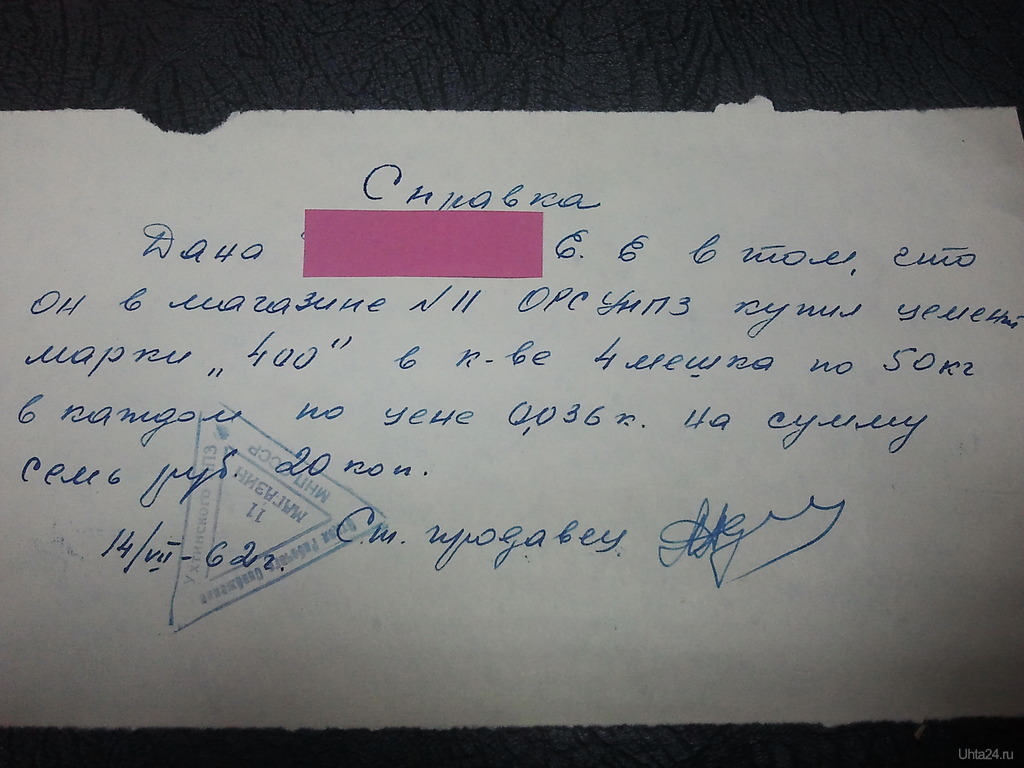 Справка
Дана Е. Е в том, что
он в магазине №11 ОРСУНПЗ купил цемент
марки „400" в к-ве 4 мешка по 50кг
в каждом по цене 0,036к. на сумму
семь руб. 20 коп.
14/VII-62г. Ст. продавец
Рабочего Снабжения
Ухтинского НПЗ
МНП СССР
МАГАЗИН
11
Uhta24.ru